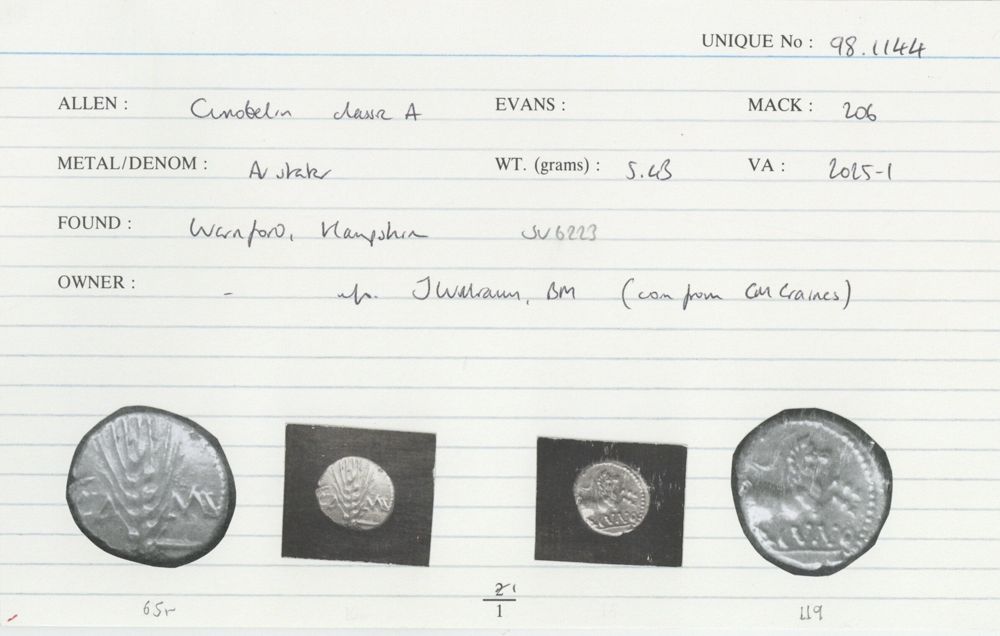 UNIQUE No : 98.1144
ALLEN : Cunobelin classic A EVANS : MACK : 206
METAL/DENOM : AV stater WT. (grams) : 5.43 VA : 2025-1
FOUND : Warnford, Hampshire SU6223
OWNER : - BM (coin from CM Graines)
CA MV
VNO
21
1
65r 119